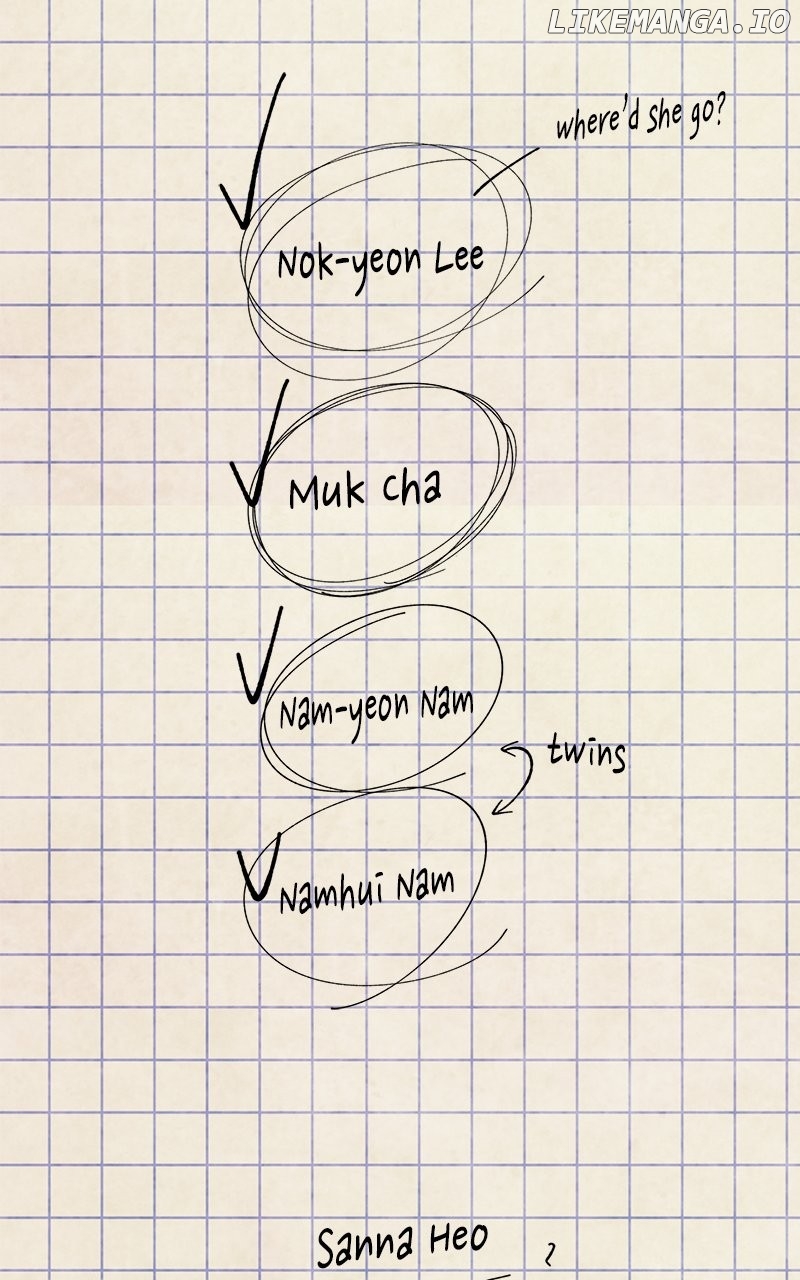 LIKEMANGA.IO
where'd she go?
Nok-yeon Lee
Muk Cha
Nam-yeon Nam
twins
Namhui Nam
Sanna Heo
?